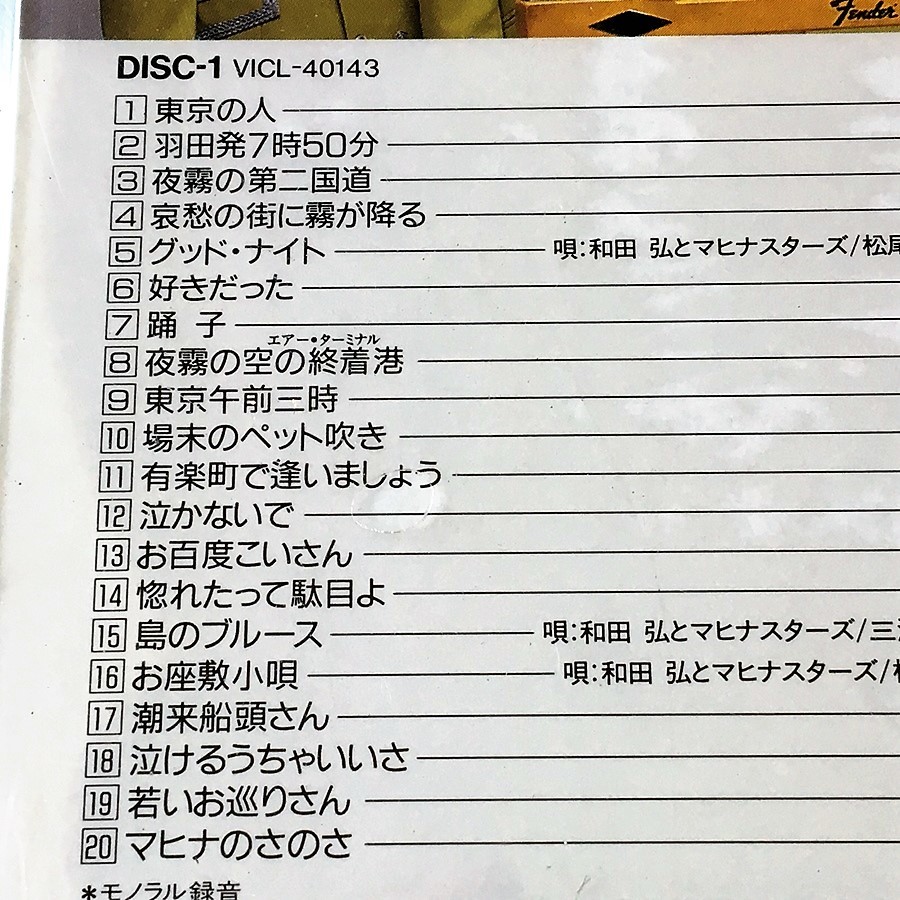 Fender
DISC-1 VICL-40143
1 東京の人
2 羽田発7時50分
3 夜霧の第二国道
4 哀愁の街に霧が降る
5 グッド・ナイト 唄:和田 弘とマヒナスターズ/松尾
6 好きだった
7 踊 子
エアー・ターミナル
8 夜霧の空の終着港
9 東京午前三時
10 場末のペット吹き
11 有楽町で逢いましょう
12 泣かないで
13 お百度こいさん
14 惚れたって駄目よ
15 島のブルース 唄:和田 弘とマヒナスターズ/三
16 お座敷小唄 唄:和田 弘とマヒナスターズ/
17 潮来船頭さん
18 泣けるうちゃいいさ
19 若いお巡りさん
20 マヒナのさのさ
*モノラル録音